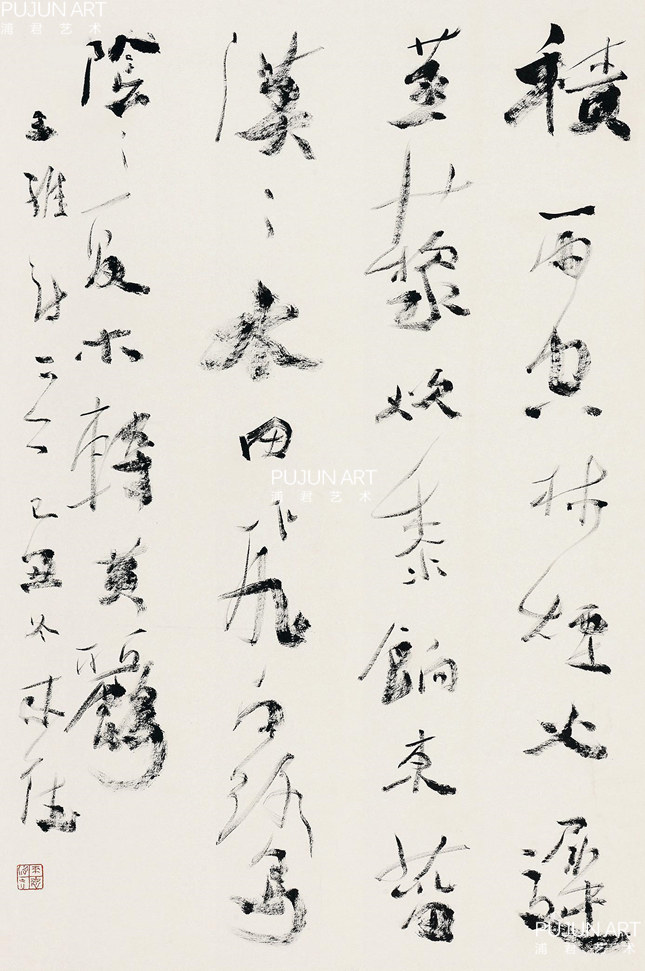 PUJUN ART
浦君艺术
積雨空林煙火遲
蒸藜炊黍餉東菑
漠〻水田飛白鷺
陰〻夏木轉黃鸝
王維詩 己丑冬
PUJUN ART
浦君艺术
PUJUN ART
浦君艺术